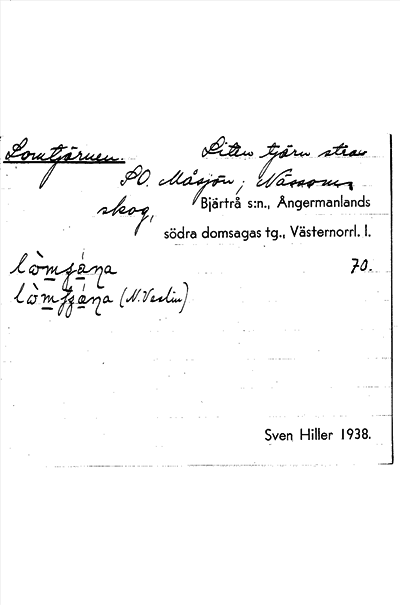 Lomtjärnen. Liten tjärn strax
SO. Måsjön; Nässoms
skog, Bjärtrå s:n., Ångermanlands
södra domsagas tg., Västernorrl. l.
70.
(N. Vestin)
Sven Hiller 1938.